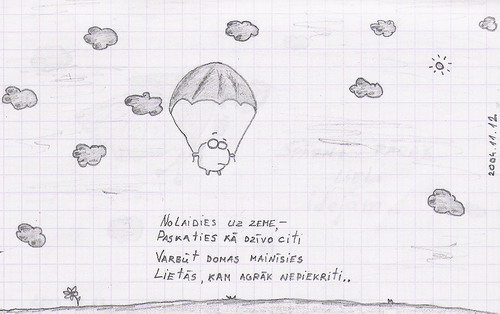 NOLAIDIES UZ ZEME,–
PASKATIES KĀ DZĪVO CITI
VARBŪT DOMAS MAINĪSIES
LIETĀS, KAM AGRĀK NEPIEKRITI..
2004.11.12.